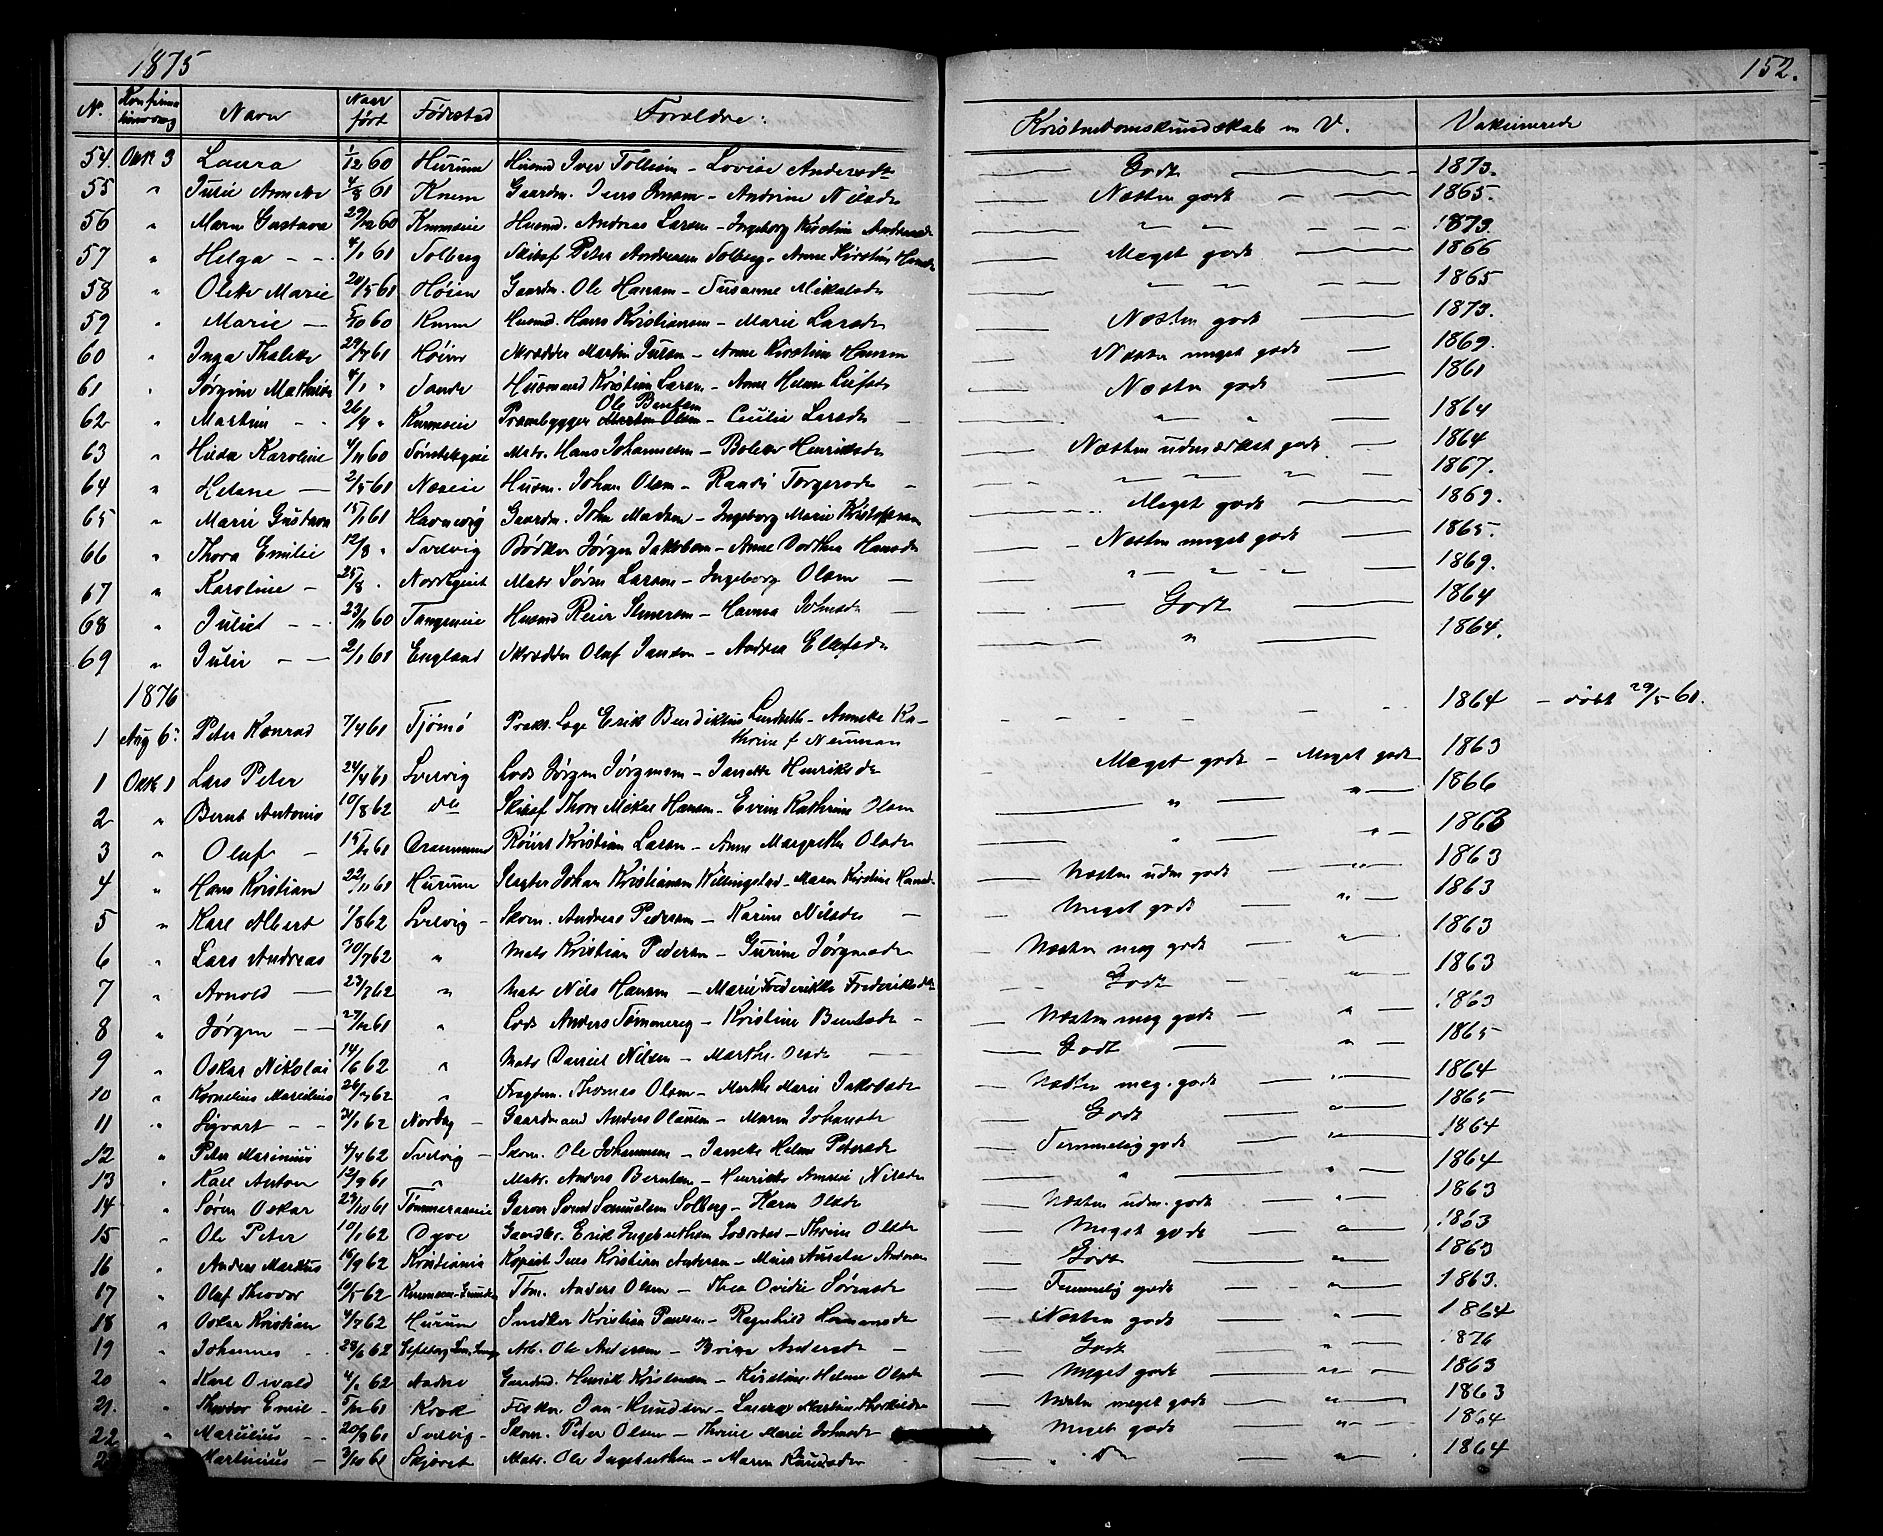 1875
152.
Nr. Konfirmationsdag Navn Naar født Fødested Forældre: Kristendomskundskab m V. Vakcinerede
54. Okt 3 Laura 1/12 60 Hurum Husmd Iver Tollefsen - Lovise Andersdt Godt 1873.
55 " Julie Annette 4/8 61 Knem Gaardm. Jens - Andrine Nilsdr Næsten godt 1865.
56 " Maren Gustava 29/12 60 Husmd. Andreas Larsen - Ingeborg Kirstine Andersdr " " 1873.
57 " Helga 4/1 61 Solberg Skibsf Peter Andresen Solberg - Anne Kirstine Hansdr Meget godt 1866
58 " Marie 20/5 61 Høien Gaardm. Ole Hansen - Susanne Mikalsdr " " 1865
59 " Marie 5/10 60 Husmd. Hans Kristiansen - Marie Larsdr Næsten godt 1873.
60 " Inga Thalette 29/7 61 Høien Skrædder Martin Julsen - Anne Kirstine Hansen Næsten meget godt 1869.
61 " Jørgine Mathilde 4/1 " Sande Husmand Kristian Larsen - Anne Helene Næsten godt 1861
62 " Martine 26/9 " Prambygger Ole Berntsen Martin Olsen - Cecilie Larsdr " " 1864
63 " Hilda Karoline 4/11 60 Matr. Hans Johannesen - Bolette Henriksdr Næsten udmærket godt 1864
64 " Helene 2/5 61 Næseie Husm. Johan Olsen - Randi Torgersdr " " " " 1867.
65 " Marie Gustava 15/1 61 Havnevig Gaardm. John Madsen - Ingeborg Marie Meget godt 1869.
66 " Thora Emilie 12/8 " Svelvig Bødker Jørgen Jakobsen - Anne Dorthea Hansdr Næsten meget godt 1865.
67 " Karoline 25/8 " Matr Søren Larsen - Ingeborg Olsen " " " " 1869.
68 " Juliet 23/11 60 Tangeneie Husmd Reier - Hanna Johnsdr Godt 1864
69 " Julie 2/1 61 England Skrædder Oluf Jansen - Andrea " 1864.
1876
1 Aug 6: Peter Konrad 7/4 61 Tjømø Prakt. Læge Erik Bendiktius - Annette Ka-thrine f Neuman 1864 - døbt 29/5 61.
1 Okt 1 Lars Peter 24/4 61 Svelvig Lods Jørgen Jørgensen - Janette Henriksdr Meget godt - Meget godt 1863
2 " Bernt Antonius 10/8 62 do Skibsf Thore Mikal Hansen - Evine Kathrine Olsen " " 1866
3 " Oluf 15/ 61 Drammen Kristian Larsen - Anne Margrethe Olsdr " " 1863
4 " Hans Kristian 22/11 61 Hurum Slagter Johan Kristiansen Killingstad - Maren Kirstine Hansdr Næsten udm godt " 1863
5 " Karl Albert 1/8 62 Svelvig Skom. Andreas Pedersen - Karine Nilsdr Meget godt " 1863
6 " Lars Andreas 30/7 62 " Matr Kristian Pedersen - Gurine Jørgensdr Næsten meg godt " 1863
7 " Arnold 23/7 62 " Matr Nils Hansen - Marie Frederikke Frederiksdr Godt " 1863
8 " Jørgen 27/12 61 " Lods Anders Tømmereg - Kristine Berntsdr Næsten meg godt " 1863
9 " Oskar Nikolai 14/6 62 " Matr Daniel Nilsen - Marthe Olsdr Godt " 1865
10 " Kornelius Marelius 26/7 62 " Fragtm. Thomas Olsen - Marthe Marie Jakobsdr Næsten meg. godt " 1864
11 " Sigvart 31/1 62 Nordby Gaardmand Anders Olausen - Maren Johansdr Godt " 1865
12 " Peter Marinius 4/4 62 Svelvig Skom. Ole Johannesen - Janette Helene Petersdr Temmelig godt " 1864
13 " Karl Anton 12/9 61 " Matr. Anders Berntsen - Henriette Amalie Nilsdr " " 1864
14 " Søren Oskar 23/10 61 Tømmeraaseie Garver Samuelsen Solberg - Karen Olsdr Næsten udm. godt " 1863
15 " Ole Peter 10/1 62 Dyve Gaardbr. Erik Ingebrethsen - Thrine Olsdr Meget godt " 1863
16 " Anders Markus 16/9 62 Kristiania Kopist Jens Kristian Andersen - Andersen Godt " 1863
17 " Oluf Theodor 10/5 62 Tøm. Anders Olsen - Thea Sørensdr Temmelig godt " 1863.
18 " Oskar Kristian 4/7 62 Hurum Snedker Kristian Paulsen - Ragnhild Hermansdr Næsten godt 1864
19 " Johannes 28/6 62 Arb. Ole Andersen - Andersdr Godt " 1876
20 " Karl Osvald 4/1 62 Gaardmd. Henrik Kristensen - Kirstine Helene Olsdr Meget godt " 1863
21. " Theodor Emil 5/12 61 Krok Fisker Jan Knudsen - Laura Martine Thorkildsdr Næsten meget godt " 1863
22 " Marelius 20/8 61 Svelvig Skom. Peter Olsen - Thrine Marie Johnsdr Meget godt " 1864
" Martinius 3/10 61 Matr. Ole Ingebrethsen - Maren Knudsdr Do " 1864